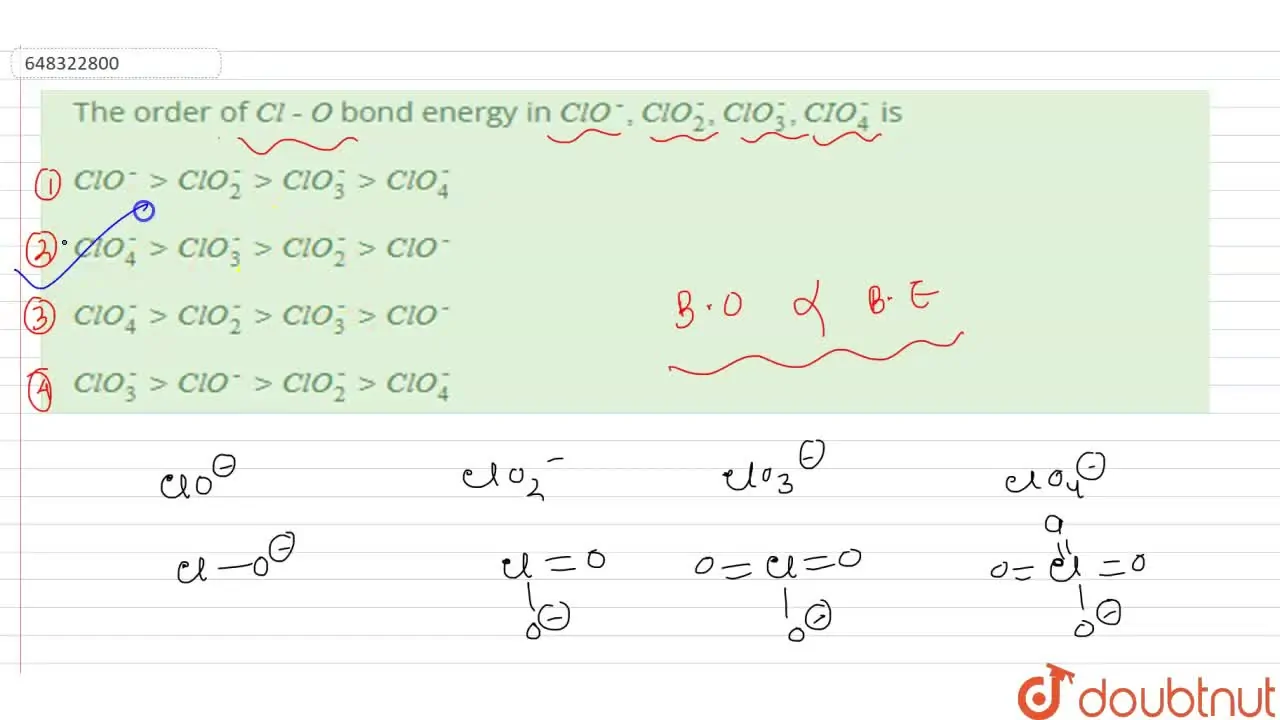 648322800
The order of Cl - O bond energy in ClO⁻, ClO₂⁻, ClO₃⁻, CIO₄⁻ is
① ClO⁻ > ClO₂⁻ > ClO₃⁻ > ClO₄⁻
② ClO₄⁻ > ClO₃⁻ > ClO₂⁻ > ClO⁻
③ ClO₄⁻ > ClO₂⁻ > ClO₃⁻ > ClO⁻
④ ClO₃⁻ > ClO⁻ > ClO₂⁻ > ClO₄⁻
B.O α B.E
ClO⊖ ClO₂⁻ ClO₃⊖ ClO₄⊖
O
Cl—O⊖ Cl=O O=Cl=O O=Cl=O
O⊖ O⊖ O⊖
doubtnut